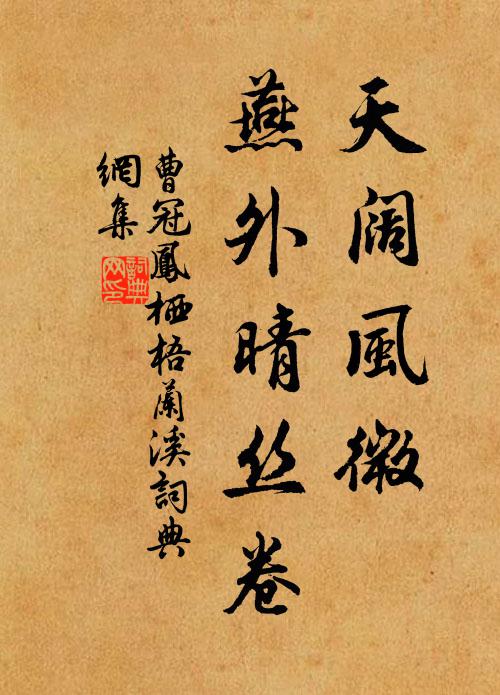 天阔風微
燕外晴丝卷
曹冠鳳栖梧蘭溪詞典
網集
詞典
网印